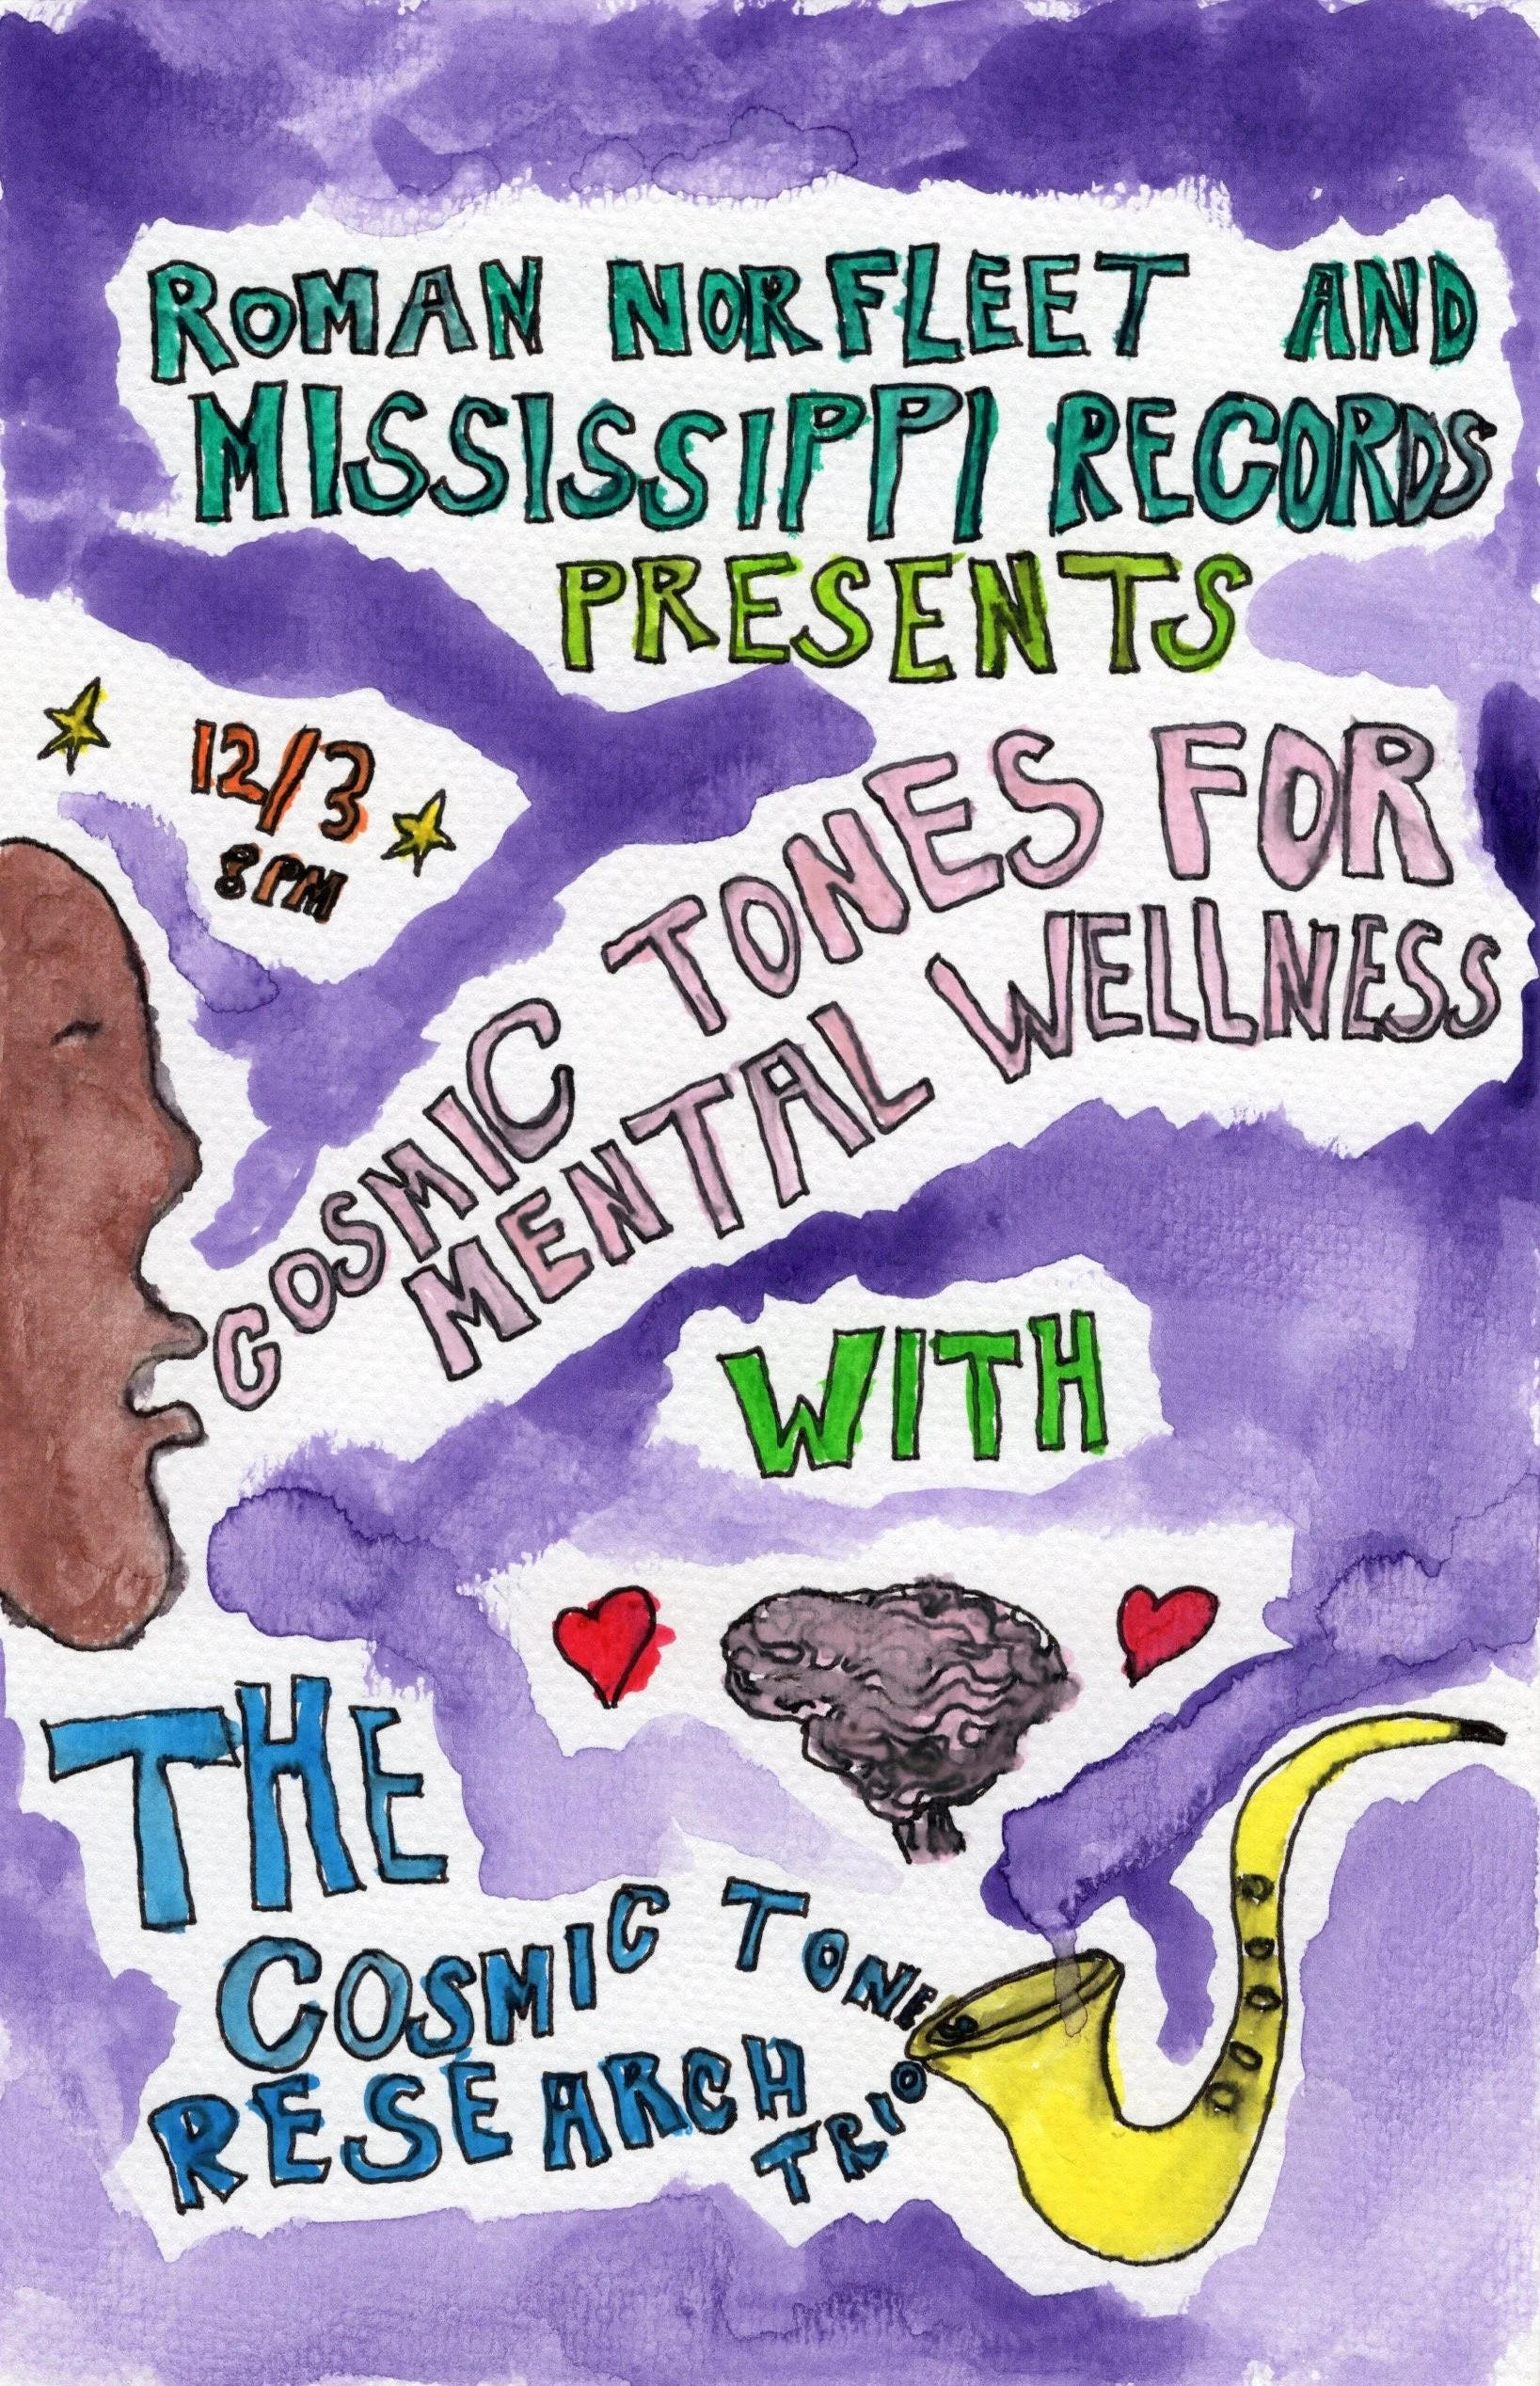 ROMAN NORFLEET AND
MISSISSIPPI RECORDS
PRESENTS
12/3
8 PM
COSMIC TONES FOR
MENTAL WELLNESS
WITH
THE
COSMIC TONES
RESEARCH
TRIO